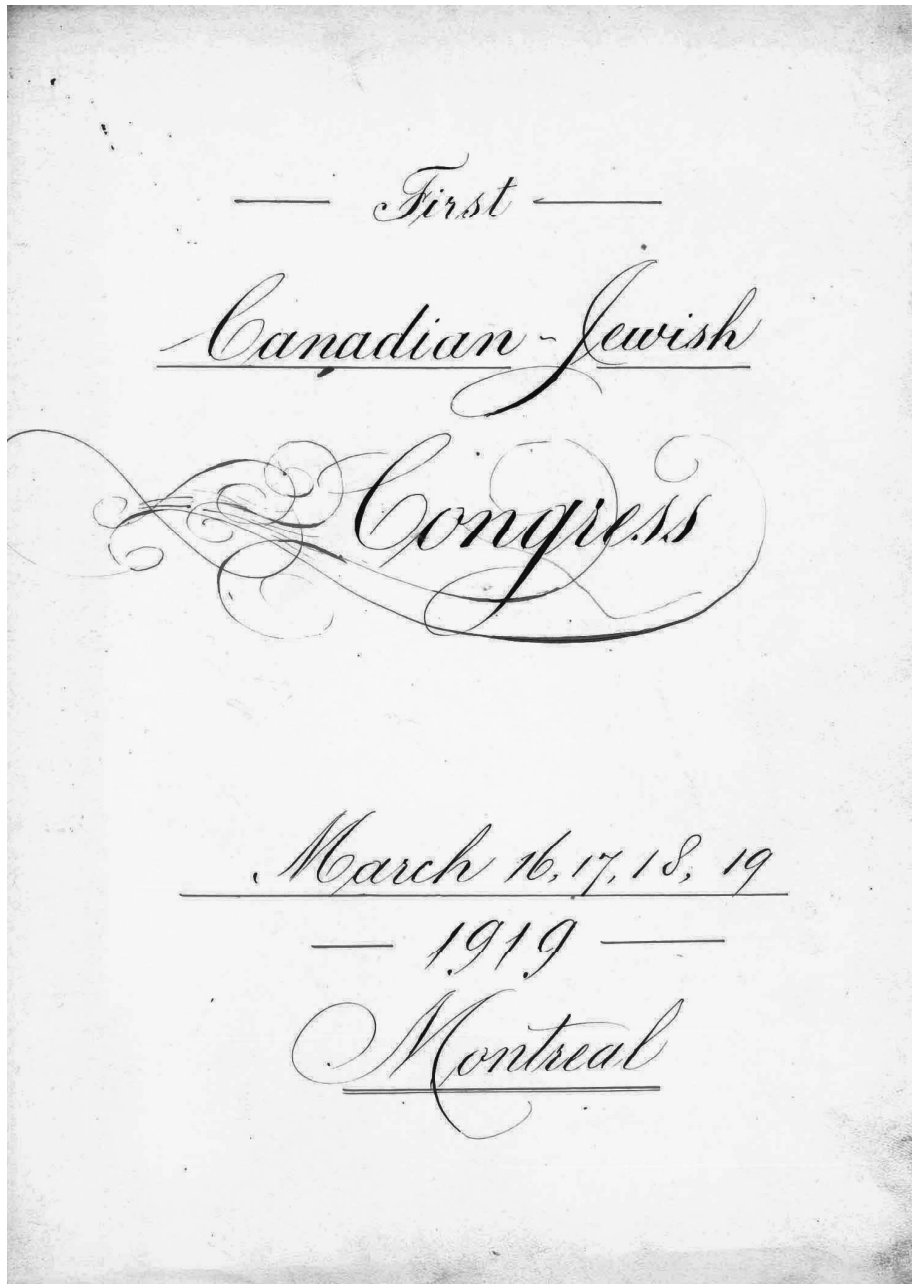 First
Canadian-Jewish
Congress
March 16, 17, 18, 19
1919
Montreal